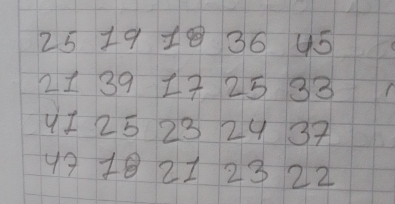 25 19 18 36 45
21 39 17 25 33
41 25 23 24 37
47 18 21 23 22